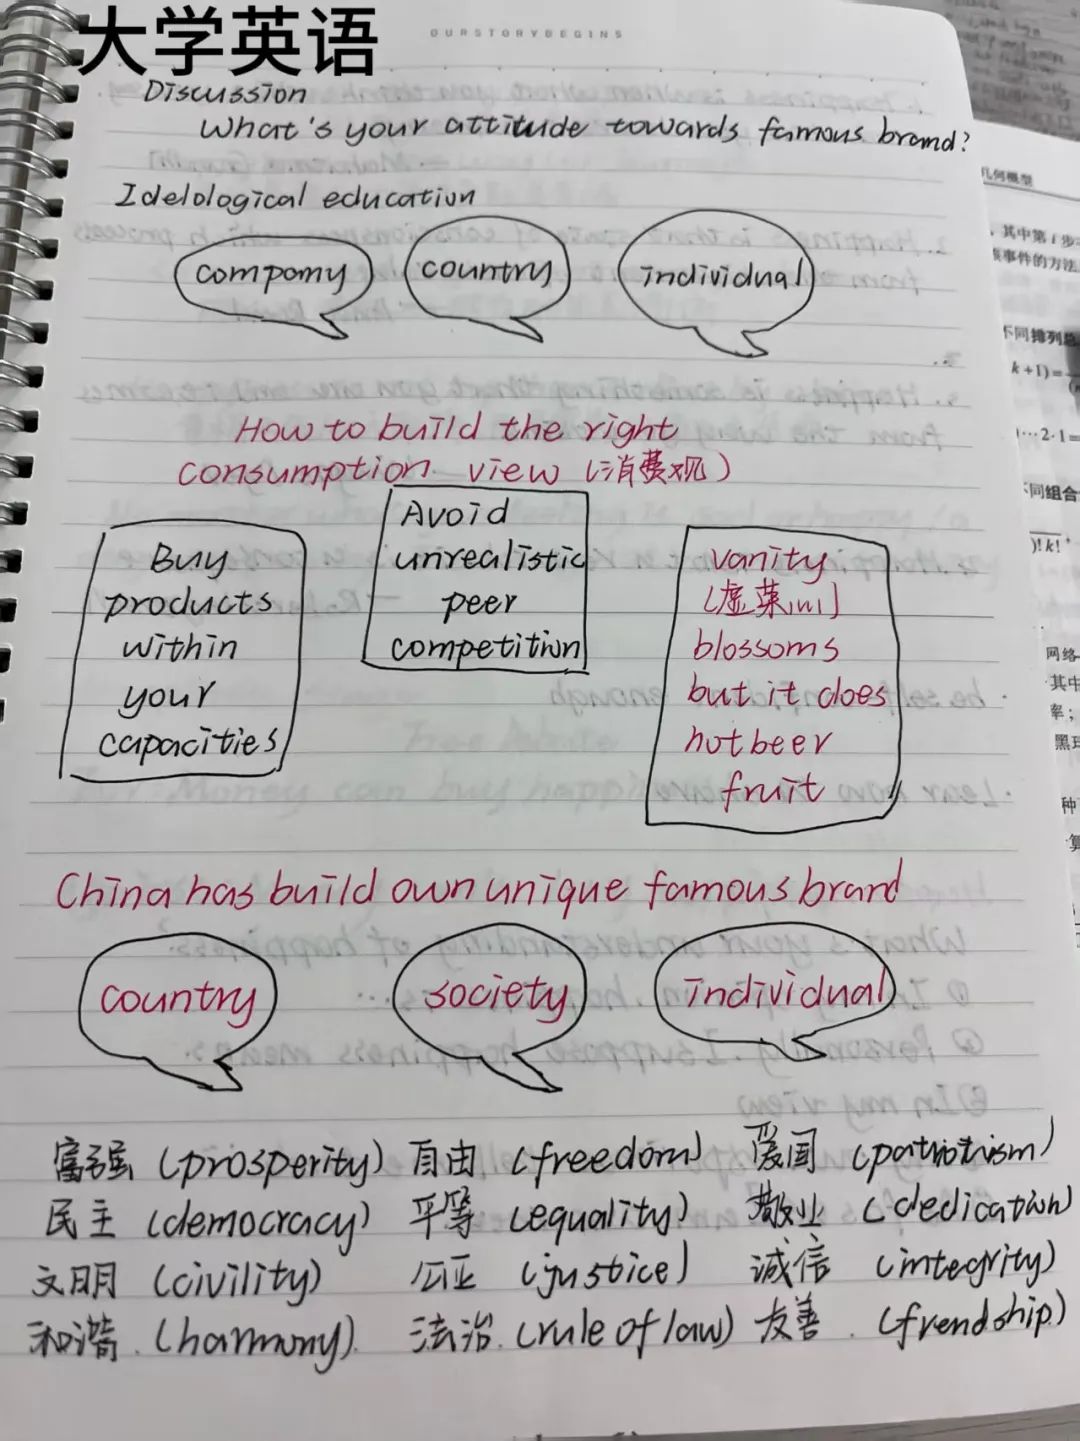 大学英语
OURSTORYBEGINS
Discussion
What's your attitude towards famous brand?
Idelological education
company
country
individual
How to build the right
consumption view (消费观)
Buy
products
within
your
capacities
Avoid
unrealistic
peer
competition
vanity
blossoms
but it does
not beer
fruit
China has build own unique famous brand
country
society
individual
富强 (prosperity) 自由 (freedom) 爱国 (patriotism)
民主 (democracy) 平等 (equality) 敬业 (dedication)
文明 (civility) 公正 (justice) 诚信 (integrity)
和谐 (harmony) 法治 (rule of law) 友善 (frendship)
几何概型
其中第 i 步
事件的方法
不同排列总
k+1)=
…2·1=
不同组合
)!k!
网络
其中
率；
种